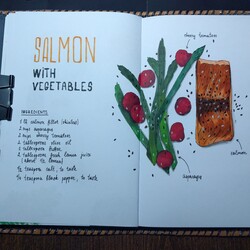 SALMON
WITH
VEGETABLES
INGREDIENTS
1 lb salmon fillet
2 cups asparagus
2 cups cherry tomatoes
2 tablespoons olive oil
2 tablespoons butter
2 tablespoons fresh lemon juice
(about ½ lemon)
teaspoon salt, to taste
teaspoon black pepper, to taste
cherry tomatoes
salmon
asparagus